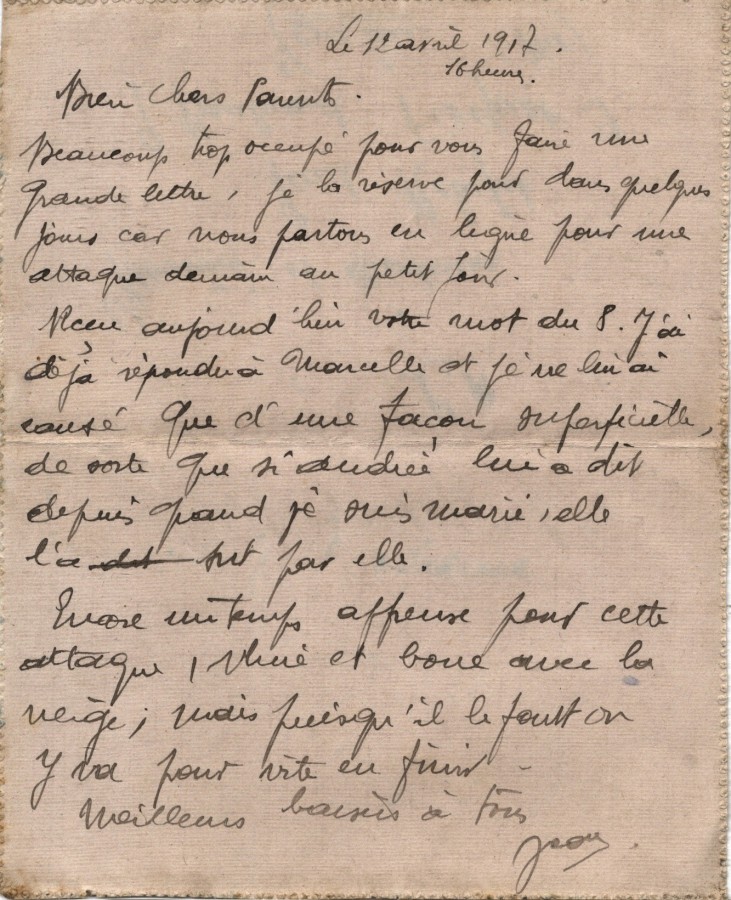 Le 12 avril 1917.
16 heures.
Bien Chers Parents.
Beaucoup trop occupé pour vous faire une
grande lettre, je la réserve pour dans quelques
jours car nous partons en ligne pour une
attaque demain au petit jour.
Recu aujourd'hui votre mot du 8. J'ai
déjà répondu à Marcelle et je ne lui ai
causé que d'une facon superficielle,
de sorte que si andrée lui a dit
depuis quand je suis marié, elle
l'a dit sut par elle.
Encore un temps affreux pour cette
attaque, Pluie et boue avec la
neige; mais puisqu'il le faut on
y va pour vite en finir.
Meilleurs baisers à tous